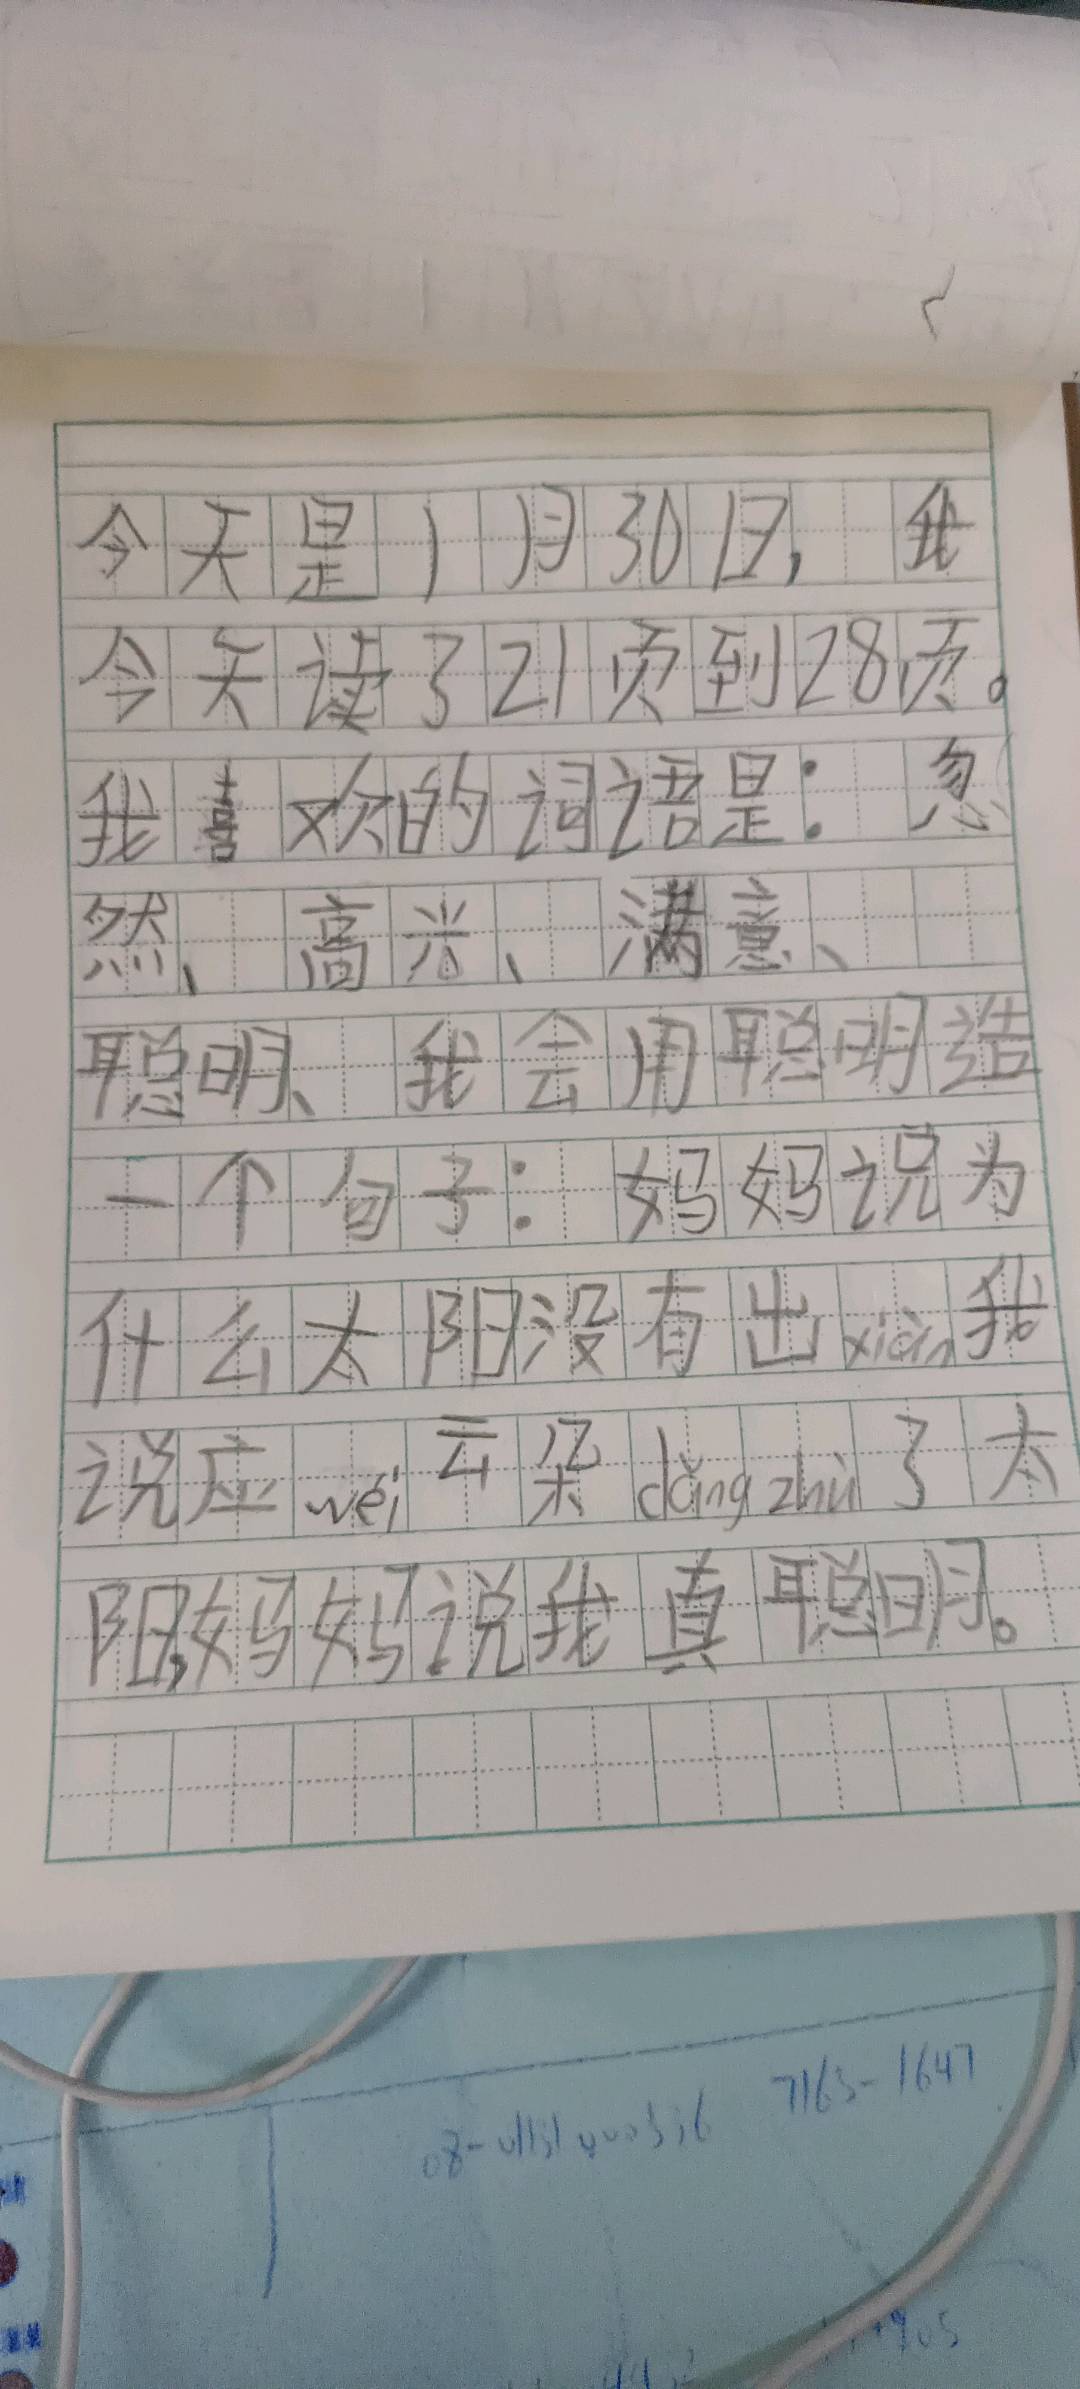 今天是1月30日，我
今天读了21页到28页。
我喜欢的词语是：忽
然、高兴、满意、
聪明、我会用聪明造
一个句子：妈妈说为
什么太阳没有出xiàn我
说应wéi云朵dǎng zhù了太
阳，妈妈说我真聪明。
7163-1647